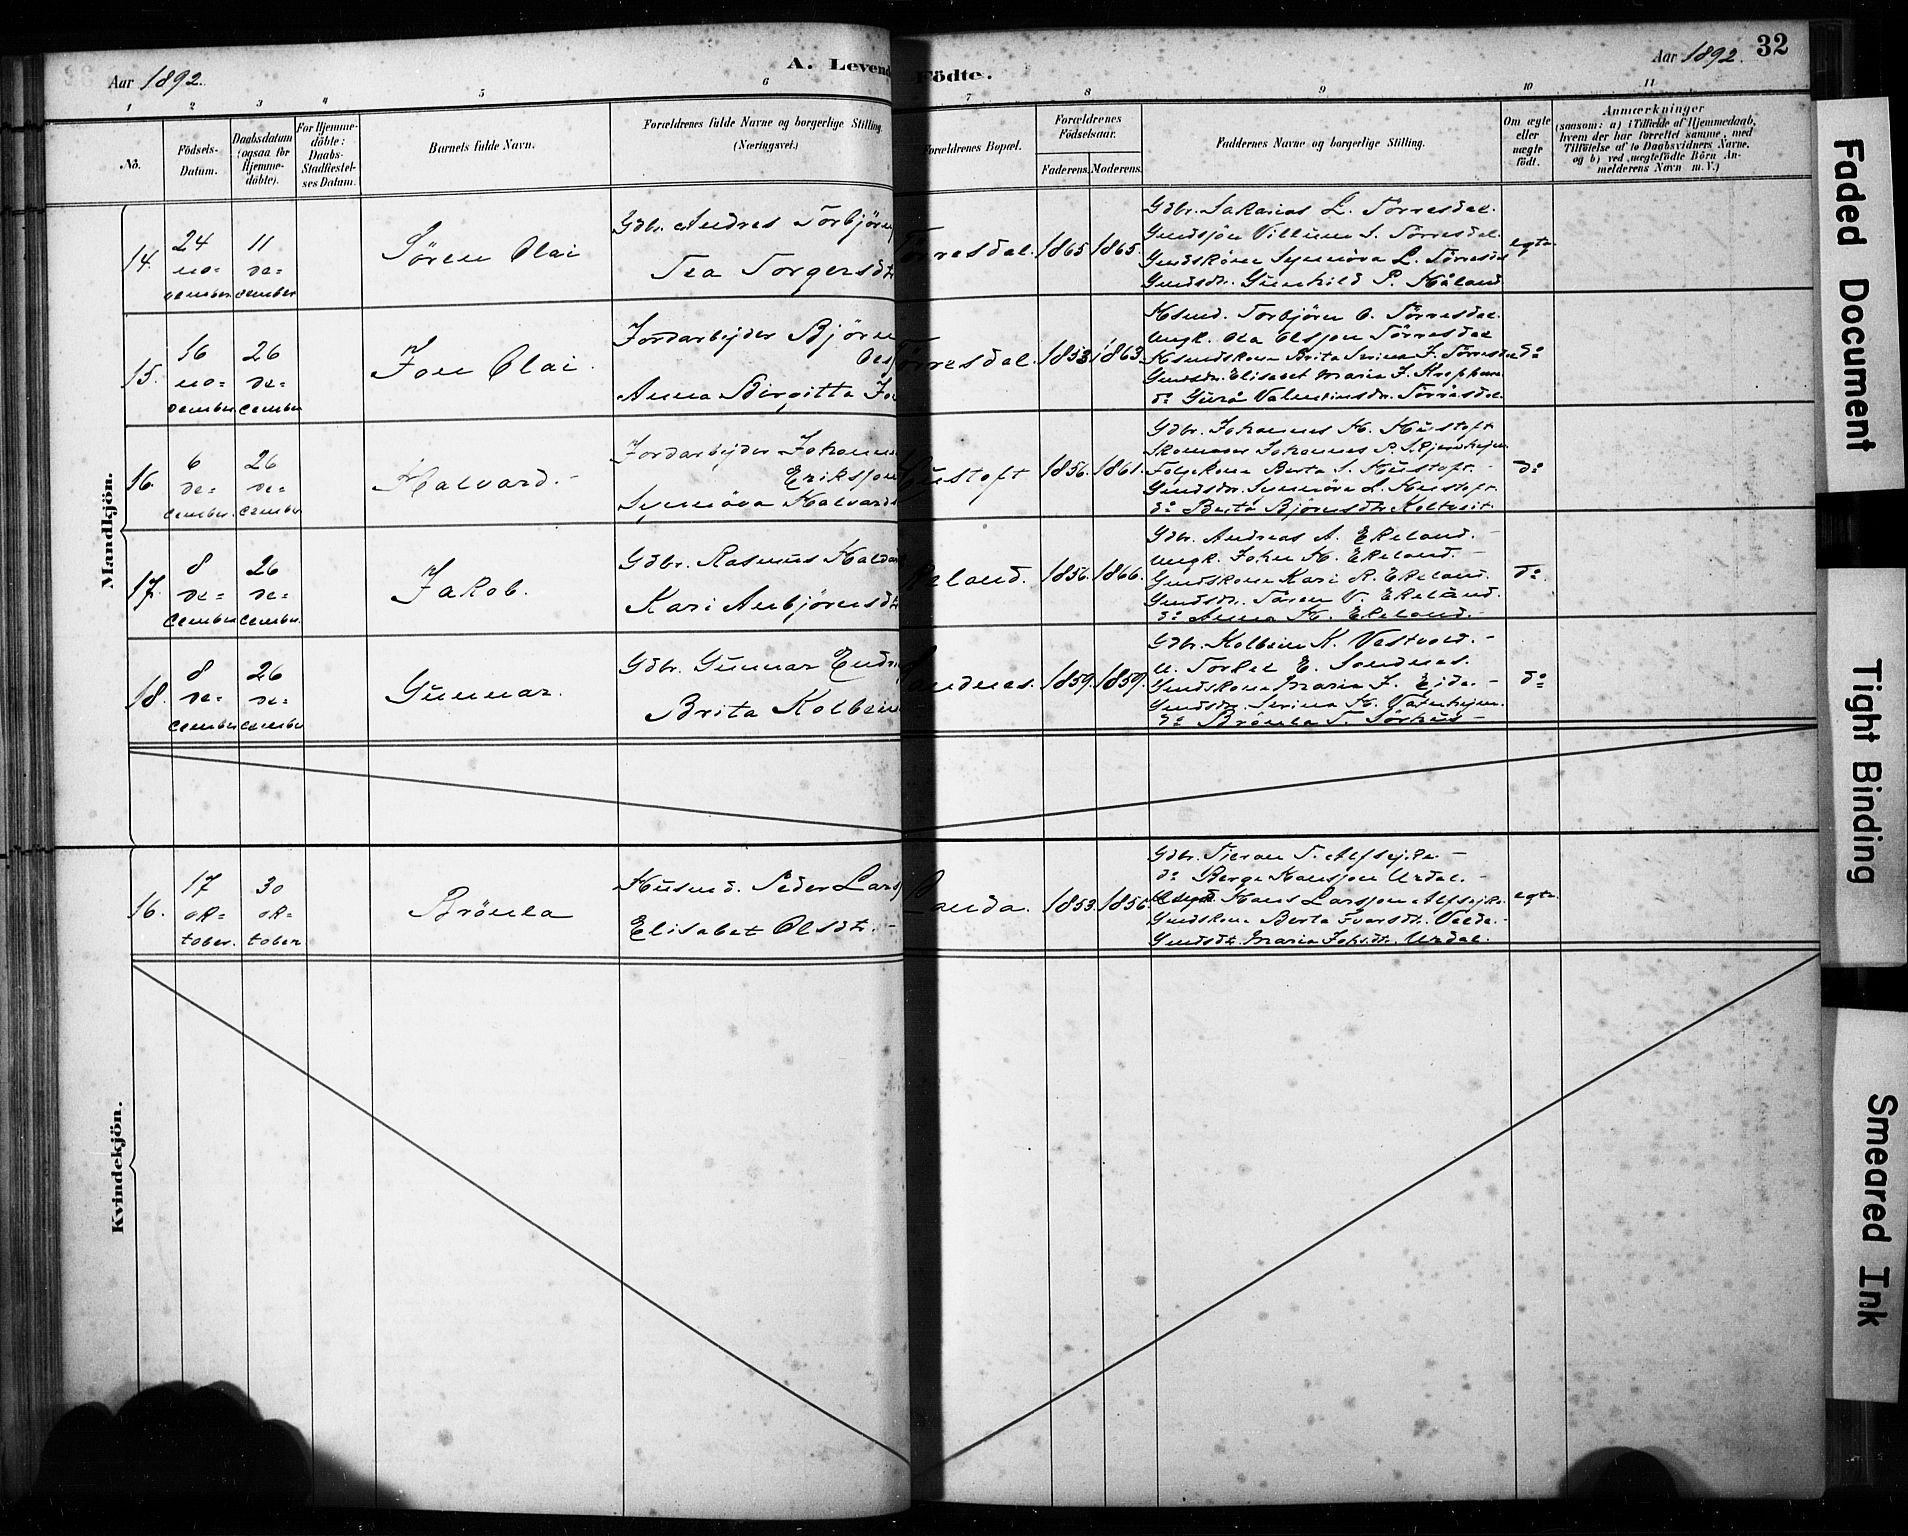 Aar 1892.
A. Levend Födte.
Aar 1892.
32
1 2 3 4 5 6 7 8 9 10 11
No.
Födsels-Datum.
Daabsdatum (ogsaa for Hjemme-döbte).
For Hjemme-döbte: Daabs-Stadfæstel-ses Datum.
Barnets fulde Navn.
Forældrenes fulde Navne og borgerlige Stilling (Næringsvei.)
Forældrenes Bopæl.
Forældrenes Födselsaar.
Faderens. Moderens.
Faddernes Navne og borgerlige Stilling.
Om ægte eller uægte födt.
Anmærkninger
(saasom: a) i Tilfælde af Hjemmedaab, hvem der har forrettet samme, med Tilföielse af to Daabsvidners Navne, og b) ved uægtefödte Börn An-melderens Navn m.V.)
Mandkjön.
14. 24 no-vember 11 de-cember
Sören Olai
Gdbr. Andres Torbjörns
Tea Torgersdt
Törresdal. 1865 1865.
Gdbr. Sakarias L. Törresdal.
Gmdsjön Villum S. Törresdal.
Gmdskone Synnöva L. Törresdal
Gmdsdr. Gunhild P. Håland
egte
15. 16 no-vember 26 de-cember
Jon Olai.
Jordarbejder Björn
Ols
Anna Birgitta Jo
Törresdal. 1853 1863.
Hsmd. Torbjörn O. Törresdal.
Ungk. Ola Olsson Törresdal
Hsmdskone Brita Serina J. Törresdal
Gmdsdr. Elisabet Maria J.
do Guro Valentinsdr. Törresdal
do
16. 6 de-cember 26 de-cember
Halvard. -
Jordarbejder Johannes
Eriksson
Synnöva Halvards
Hustoft 1856. 1861.
Gdbr. Johannes H. Hustoft
Skomager Johannes P.
Folgekone Berta S. Hustoft. -
Gmdsdr. Synnöva L. Hustoft.
do Berta Björnsdtr.
do
17. 8 de-cember 26 de-cember
Jakob.
Gdbr. Rasmus Haldor
Kari Anbjörnsdt
Ekeland. 1856. 1866.
Gdbr. Andreas A. Ekeland. -
Ungk. John H. Ekeland. -
Gmdskone Kari R. Ekeland.
Gmdsdr. Sören V. Ekeland.
do Anna H. Ekeland. -
do
18. 8 de-cember 26 de-cember
Gunnar.
Gdbr. Gunnar Endr
Brita Kolbein
Sandnes. 1859. 1859.
Gdbr. Kolbein K. Vestvold. -
U. Torkel E. Sandnes.
Gmdskone Maria J. Eide. -
Gmdsdr. Serina H.
do Brönla T. Sörhus -
do
Kvindekjön.
16. 17 ok-tober. 30 ok-tober
Brönla
Husmd. Peder Lars
Elisabet Olsdt. -
Landa. 1853. 1856
Gdbr. T. Alfsejke -
do Berge Hansson Urdal. -
Hans Larsson Alfsejke
Gmdskone Berta Ivarsdt. Velde. -
Gmdsdt. Maria Johsdt. Urdal.
egte
Faded Document
Tight Binding
Smeared Ink